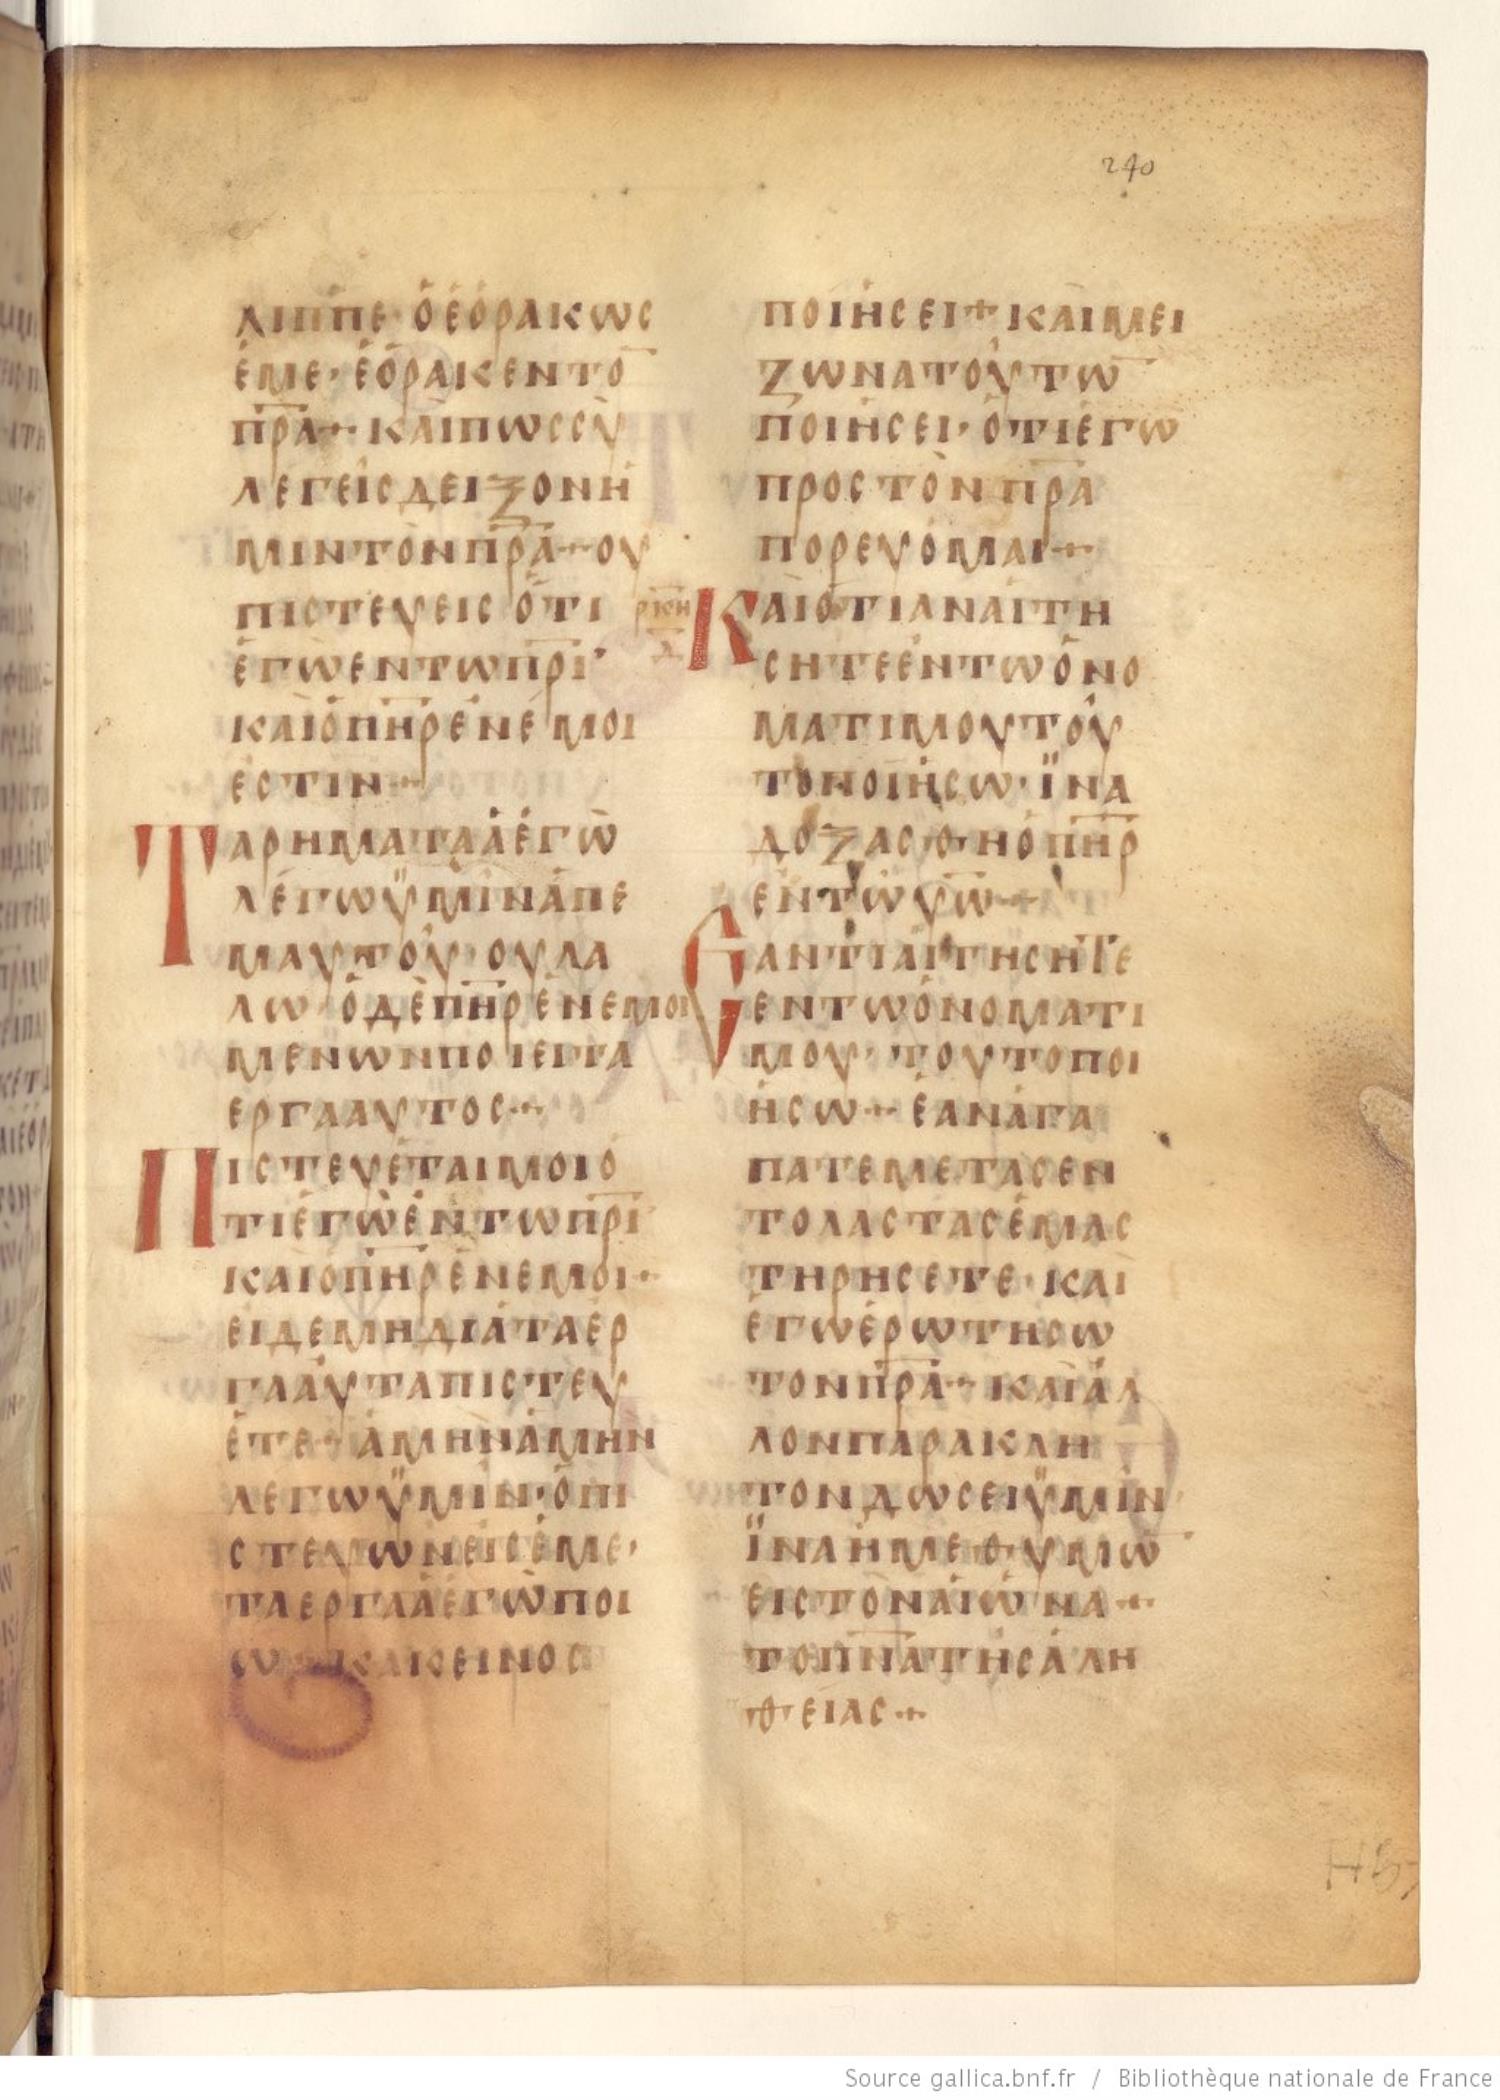 240
ΛΙΠΠΕ· ὁ ἑόρακως
ἐμε· ἑόρακεν το̅
π̅ρ̅α̅+ καὶ πως σὺ
λεγεις δειξον ἡ
μιν τὸν π̅ρ̅α̅+ ου
πιστευεις ὅτι
ἐγὼ εν τω π̅ρ̅ι̅·
καὶ ὁ π̅η̅ρ̅ ἐν ἐμοι
ἐστιν+
Τα ρηματα ἃ ἐγὼ
λέγω ϋμὶν ἀπ ε
μαυτοὺ· ου λα
λω· ὁ δὲ π̅η̅ρ̅ ἐν εμοι
μενων ποιει τα
εργα αυτος+
Πιστευέται μοι ὅ
τι ἐγὼ ἐν τω π̅ρ̅ι̅
και ο π̅η̅ρ̅ ἐν εμοι·
ει δε μη διὰ τα ἐρ
γα ἀυτα πιστευ
ἐτε+ ἀμὴν ἀμην
λεγω ϋμιν· ὁ πι
στευων εις ἐμε·
τα εργα ἃ ἐγὼ ποι
ω+ κακεινος
ποιήσει+ καὶ μει
ζωνα τούτω̅
ποιήσει· ὅτι ἐγω
προς τὸν π̅ρ̅α̅
πορευόμαι+
ρκη
δ
Και ὅτι αν αιτη
σητε ἐν τω ὀνο
ματι μου τοὺ
το ποιήσω· ϊνα
δοξασθη ὁ π̅η̅ρ̅
ἐν τὼ υ̅ω̅+
Ἐαν τι αἰτησητε
εν τω ὀνοματι
μου· τουτο ποι
ήσω+ ἐαν ἀγα
πατε με τας εν
τολας τας ἐμας
τηρησετε· καὶ
ἐγω ἐρωτησω
τον π̅ρ̅α̅+ καὶ ἀλ
λον παρακλη
τον δωσει ϋμὶν·
ϊνα ἠ με θ υμω̅
εις τὸν αἰώνα+
το π̅ν̅α̅ τῆς ἀλη
θειας+
Source gallica.bnf.fr / Bibliothèque nationale de France